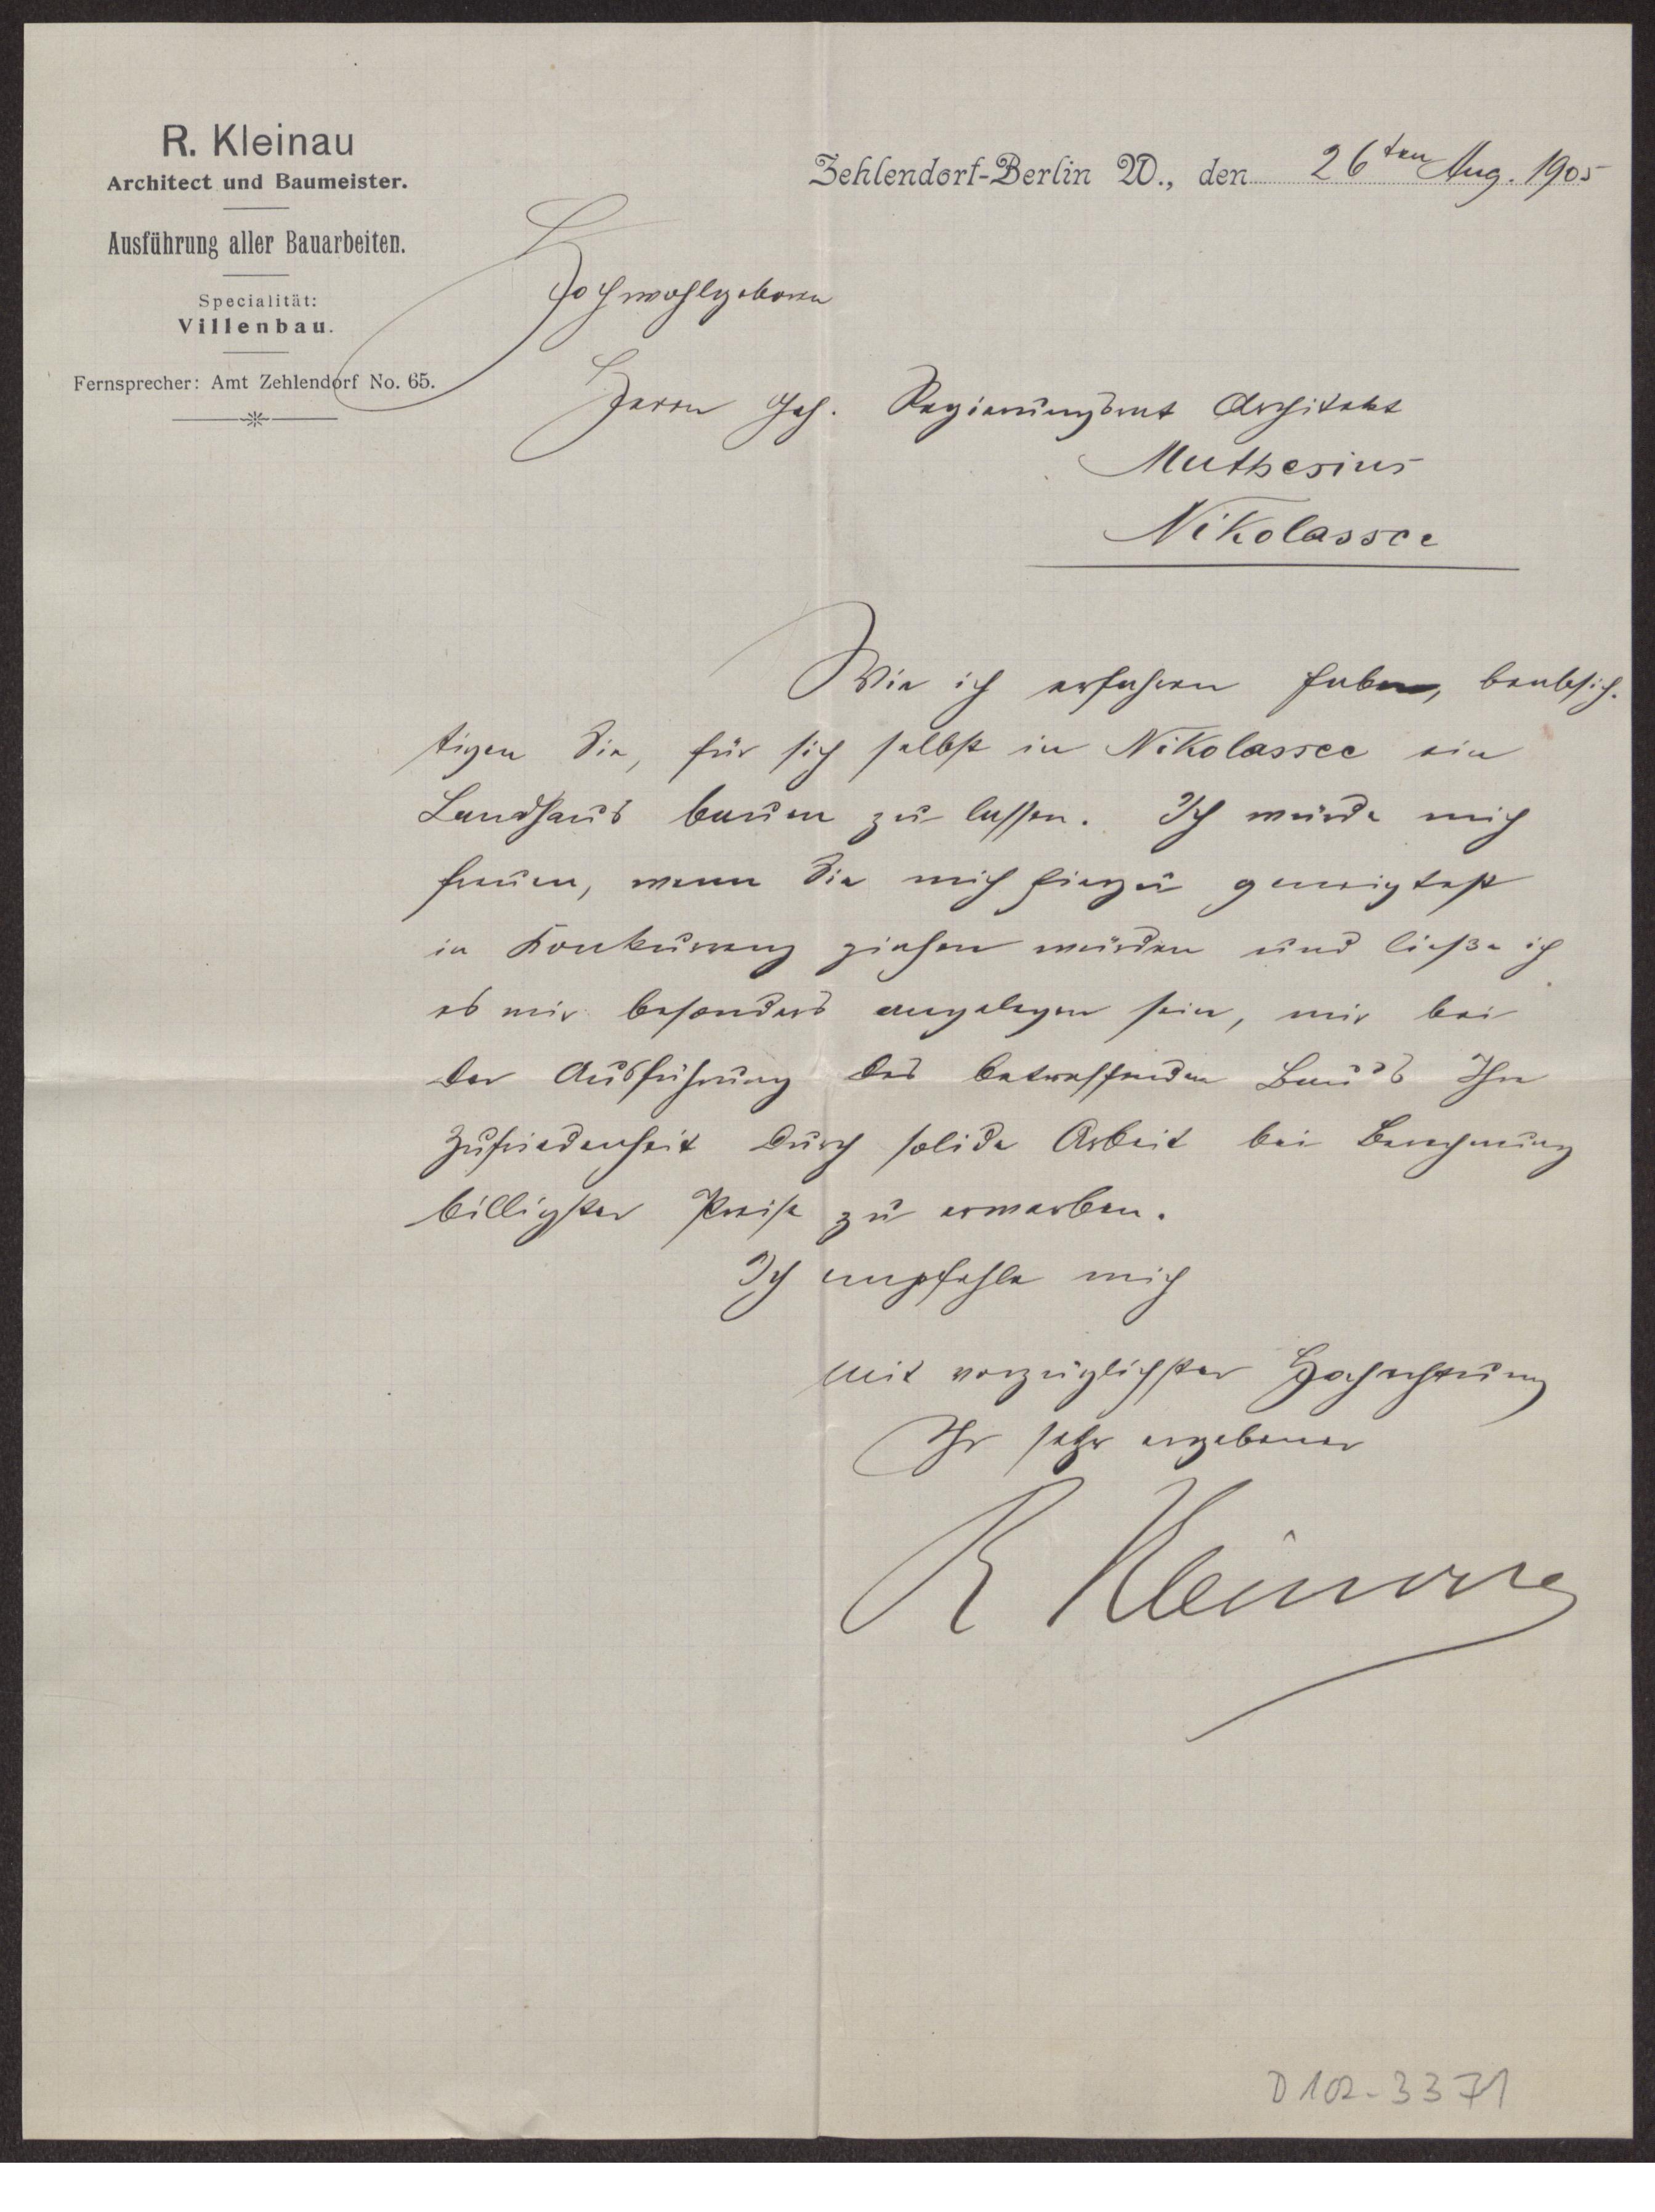 R. Kleinau
Architect und Baumeister.
Ausführung aller Bauarbeiten.
Specialität:
Villenbau.
Fernsprecher: Amt Zehlendorf No. 65.
Zehlendorf-Berlin W., den 26ten Aug. 1905
Hochwohlgeboren
Herrn Geh. Regierungsrat Architekt
Muthesius
Nikolassee
Wie ich erfahren habe, beabsich-
tigen Sie, für sich selbst in Nikolassee ein
Landhaus bauen zu lassen. Ich würde mich
freuen, wenn Sie mich hierzu geneigtest
in Konkurrenz ziehen würden und ließe ich
es mir besonders angelegen sein, mir bei
der Ausführung des betreffenden Bau's Ihre
Zufriedenheit durch solide Arbeit bei Berechnung
billigster Preise zu erwerben.
Ich empfehle mich
mit vorzüglichster Hochachtung
Ihr sehr ergebener
R Kleinau
D 102-3371